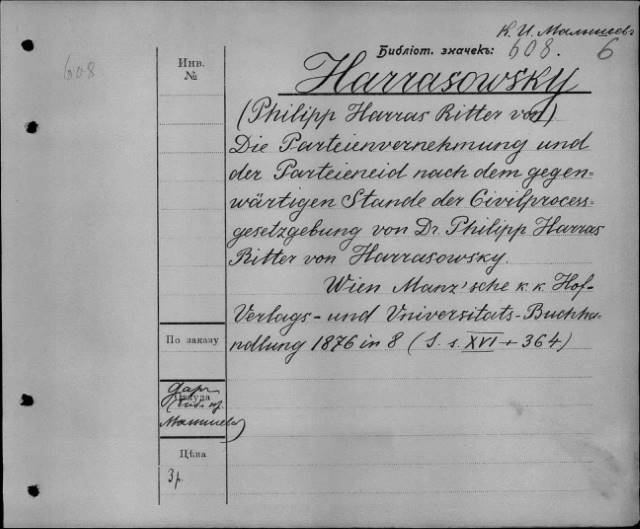 К. И. Малышевъ
608
Библіот. значекъ: 608. 6
Инв.
№
Harrasowsky
(Philipp Harras Ritter von)
Die Parteienvernehmung und
der Parteieneid nach dem gegen=
wärtigen Stande der Civilprocess=
gesetzgebung von Dr. Philipp Harras
Ritter von Harrasowsky.
Wien Manz'sche k. k. Hof-
Verlags- und Universitäts-Buchha-
ndlung 1876 in 8 (S. s. XVI + 364)
По заказу
Даръ
Откуда
Малышева)
Цѣна
3 р.